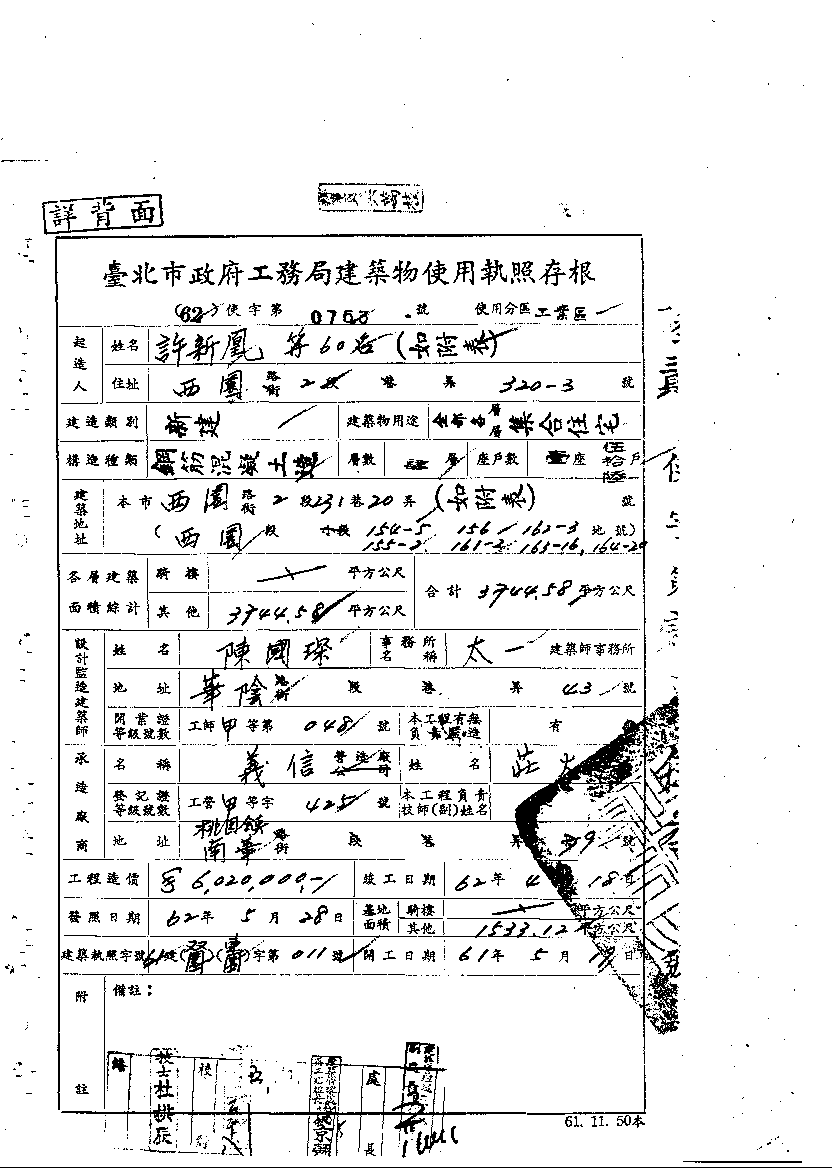 詳背面
臺北市政府工務局建築物使用執照存根
(62)使字第 0763 號 使用分區 工業區
起造人 姓名 許新凰 等60名(如附表)
住址 西園 路街 2段 巷 弄 320-3 號
建造類別 新建 建築物用途 全部各層層集合住宅
構造種類 鋼筋混凝土造 層數 肆層 座戶數 壹座 伍拾陸戶
建築地址 本市 西園 路街 2段231巷20弄(如附表) 號
(西園 段 小段 154-5 156 162-3 地號)
155-2 161-2 163-16, 164-20
各層建築面積綜計 騎樓 平方公尺 合計 3744.58 平方公尺
其他 3744.58 平方公尺
設計監造建築師 姓名 陳國琛 事務所名稱 太一 建築師事務所
地址 華陰 路街 段 巷 弄 43 號
開業證等級號數 工師甲等第 048 號 本工程有無負責監造 有
承造廠商 名稱 義信 營造廠公司 姓名 莊
登記證等級號數 工營甲等字 425 號 本工程負責技師(副)姓名
地址 桃園鎮南華 路街 段 巷 弄 號
工程造價 6,020,000,- 竣工日期 62年 4 18日
發照日期 62年 5月 28日 基地面積 騎樓 平方公尺
其他 1533.12 平方公尺
建築執照字號 61建( )( )字第 011 號 開工日期 61年 5月 日
附註 備註:
技士杜拱辰
處長
61.11.50本